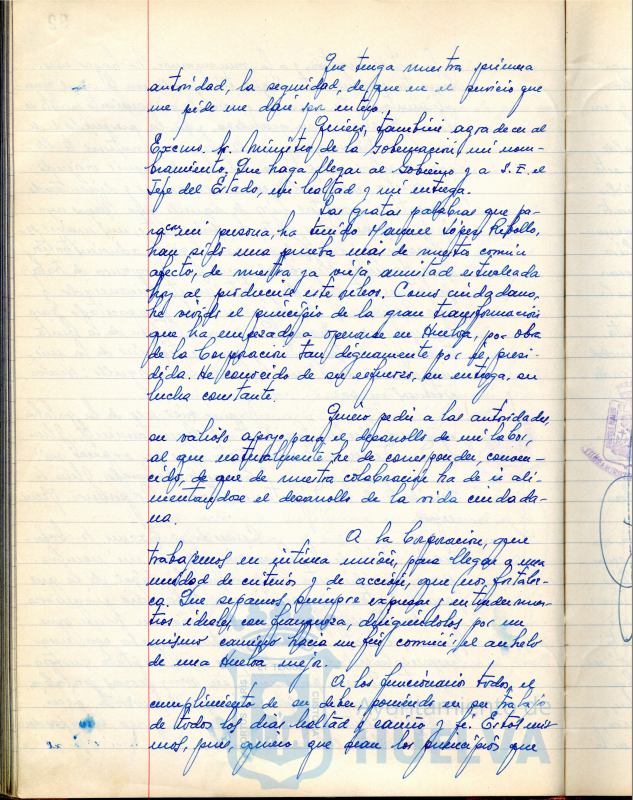 Que tenga nuestra primera
autoridad, la seguridad, de que en el servicio que
me pide me daré por entero.
Quiero, también agradecer al
Excmo. Sr. Ministro de la Gobernación, mi nom-
bramiento, que haga llegar al Gobierno y a S. E. el
Jefe del Estado, mi lealtad y mi entrega.
Las gratas palabras que pa-
ra con mi persona, ha tenido Manuel López Rebollo,
han sido una prueba más de nuestro común
afecto, de nuestra ya vieja amistad
hoy al producirse este relevo. Como ciudadano,
he vivido el principio de la gran transformación
que ha empezado a operarse en Huelva, por obra
de la Corporación tan dignamente por él, presi-
dida. He conocido de su esfuerzo, su entrega, su
lucha constante.
Quiero pedir a las autoridades,
su valioso apoyo, para el desarrollo de mi labor,
al que naturalmente he de corresponder, conven-
cido, de que de nuestra colaboración ha de ir ali-
mentandose el desarrollo de la vida ciudada-
na.
A la Corporación, que
trabajemos en íntima unión, para llegar a una
unidad de criterios y de acción, que nos fortalez-
ca. Que sepamos siempre expresar y entender nues-
tros ideales con franqueza, dirigiéndolos por un
mismo camino hacia un fin común: el anhelo
de una Huelva mejor.
A los funcionarios todos, el
cumplimiento de su deber poniendo en su trabajo
de todos los días lealtad y cariño y fé. Estos mis-
mos, pues, quiero que sean los principios que
Ayuntamiento de
HUELVA